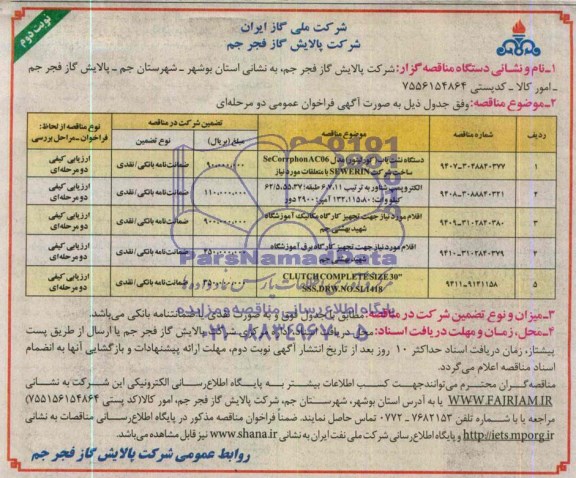 نوبت دوم
شرکت ملی گاز ایران
شرکت پالایش گاز فجر جم
۱ـ نام و نشانی دستگاه مناقصه گزار: شرکت پالایش گاز فجر جم، به نشانی استان بوشهر ـ شهرستان جم ـ پالایش گاز فجر جم
ـ امور کالا ـ کدپستی ۷۵۵۶۱۵۴۸۶۴
۲ـ موضوع مناقصه: وفق جدول ذیل به صورت آگهی فراخوان عمومی دو مرحله‌ای
ردیف شماره مناقصه موضوع مناقصه تضمین شرکت در مناقصه نوع مناقصه از لحاظ: فراخوان ـ مراحل بررسی
مبلغ (ریال) نوع تضمین
۱ ۹۴۰۷ـ۳۰۲۸۸۴۰۳۷۷ دستگاه نشت یاب مدل SeCorrphon AC06 ساخت شرکت SEWERIN با متعلقات مورد نیاز ۹۰،۰۰۰،۰۰۰ ضمانت‌نامه بانکی/نقدی ارزیابی کیفی دو مرحله‌ای
۲ ۹۴۰۸ـ۳۰۸۸۴۰۳۲۱ الکتروپمپ شناور به ترتیب ۶،۷،۱۱ طبقه/ ۶۲/۵،۵۵،۳۷ کیلووات/ ۱۳۳،۱۱۵،۸۰ آمپر/ ۲۹۰۰ دور ۱۱۰،۰۰۰،۰۰۰ ضمانت‌نامه بانکی/نقدی ارزیابی کیفی دو مرحله‌ای
۳ ۹۴۰۹ـ۳۱۰۲۸۴۰۳۸۰ اقلام مورد نیاز جهت تجهیز کارگاه مکانیک آموزشگاه شهید بهشتی جم ۹۰۰،۰۰۰،۰۰۰ ضمانت‌نامه بانکی/نقدی ارزیابی کیفی دو مرحله‌ای
۴ ۹۴۱۰ـ۳۱۰۲۸۴۰۳۷۹ اقلام مورد نیاز جهت تجهیز کارگاه برق آموزشگاه جم ضمانت‌نامه بانکی/نقدی ارزیابی کیفی دو مرحله‌ای
۵ ۹۴۱۱ـ۹۱۲۱۱۵۸ CLUTCH COMPLETE SIZE 30" SSS.DRW.NO:SL1418 ضمانت‌نامه بانکی/نقدی ارزیابی کیفی دو مرحله‌ای
ParsNamadData
پایگاه اطلاع رسانی مناقصه و مزایده
۰۲۱-۸۸۳۴۹۶۷۰-۵
۳ـ میزان و نوع تضمین شرکت در مناقصه: مطابق با جدول فوق و به صورت نقدی یا ضمانتنامه بانکی می‌باشد.
۴ـ محل، زمان و مهلت دریافت اسناد: محل دریافت اسناد، شرکت پالایش گاز فجر جم یا ارسال از طریق پست
پیشتاز، زمان دریافت اسناد حداکثر ۱۰ روز بعد از تاریخ انتشار آگهی نوبت دوم، مهلت ارائه پیشنهادات و بازگشایی آنها به انضمام
اسناد مناقصه اعلام می‌گردد.
مناقصه‌گران محترم می‌توانند جهت کسب اطلاعات بیشتر به پایگاه اطلاع‌رسانی الکترونیکی این شرکت به نشانی
WWW.FAJRJAM.IR یا به آدرس استان بوشهر، شهرستان جم، شرکت پالایش گاز فجر جم، امور کالا (کد پستی ۷۵۵۱۵۶۱۵۴۸۶۴)
مراجعه یا با شماره تلفن ۷۶۸۲۱۵۳ ـ ۰۷۷۲ تماس حاصل نمایند. ضمناً فراخوان مناقصه مذکور در پایگاه اطلاع‌رسانی مناقصات به نشانی
http://iets.mporg.ir و پایگاه اطلاع‌رسانی شرکت ملی نفت ایران به نشانی www.shana.ir نیز قابل مشاهده می‌باشد.
روابط عمومی شرکت پالایش گاز فجر جم